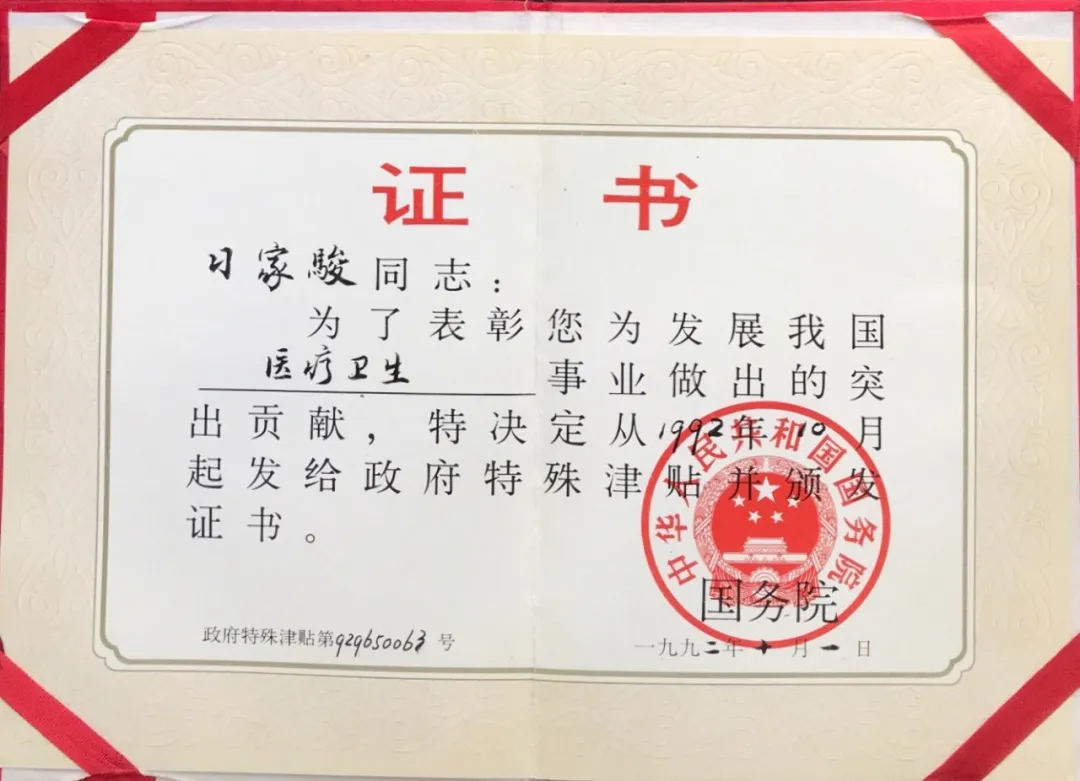 证书
刁家駿同志：
为了表彰您为发展我国
医疗卫生事业做出的突
出贡献，特决定从1992年10月
起发给政府特殊津贴并颁发
证书。
中华人民共和国国务院
国务院
政府特殊津贴第929650063号
一九九二年十月一日